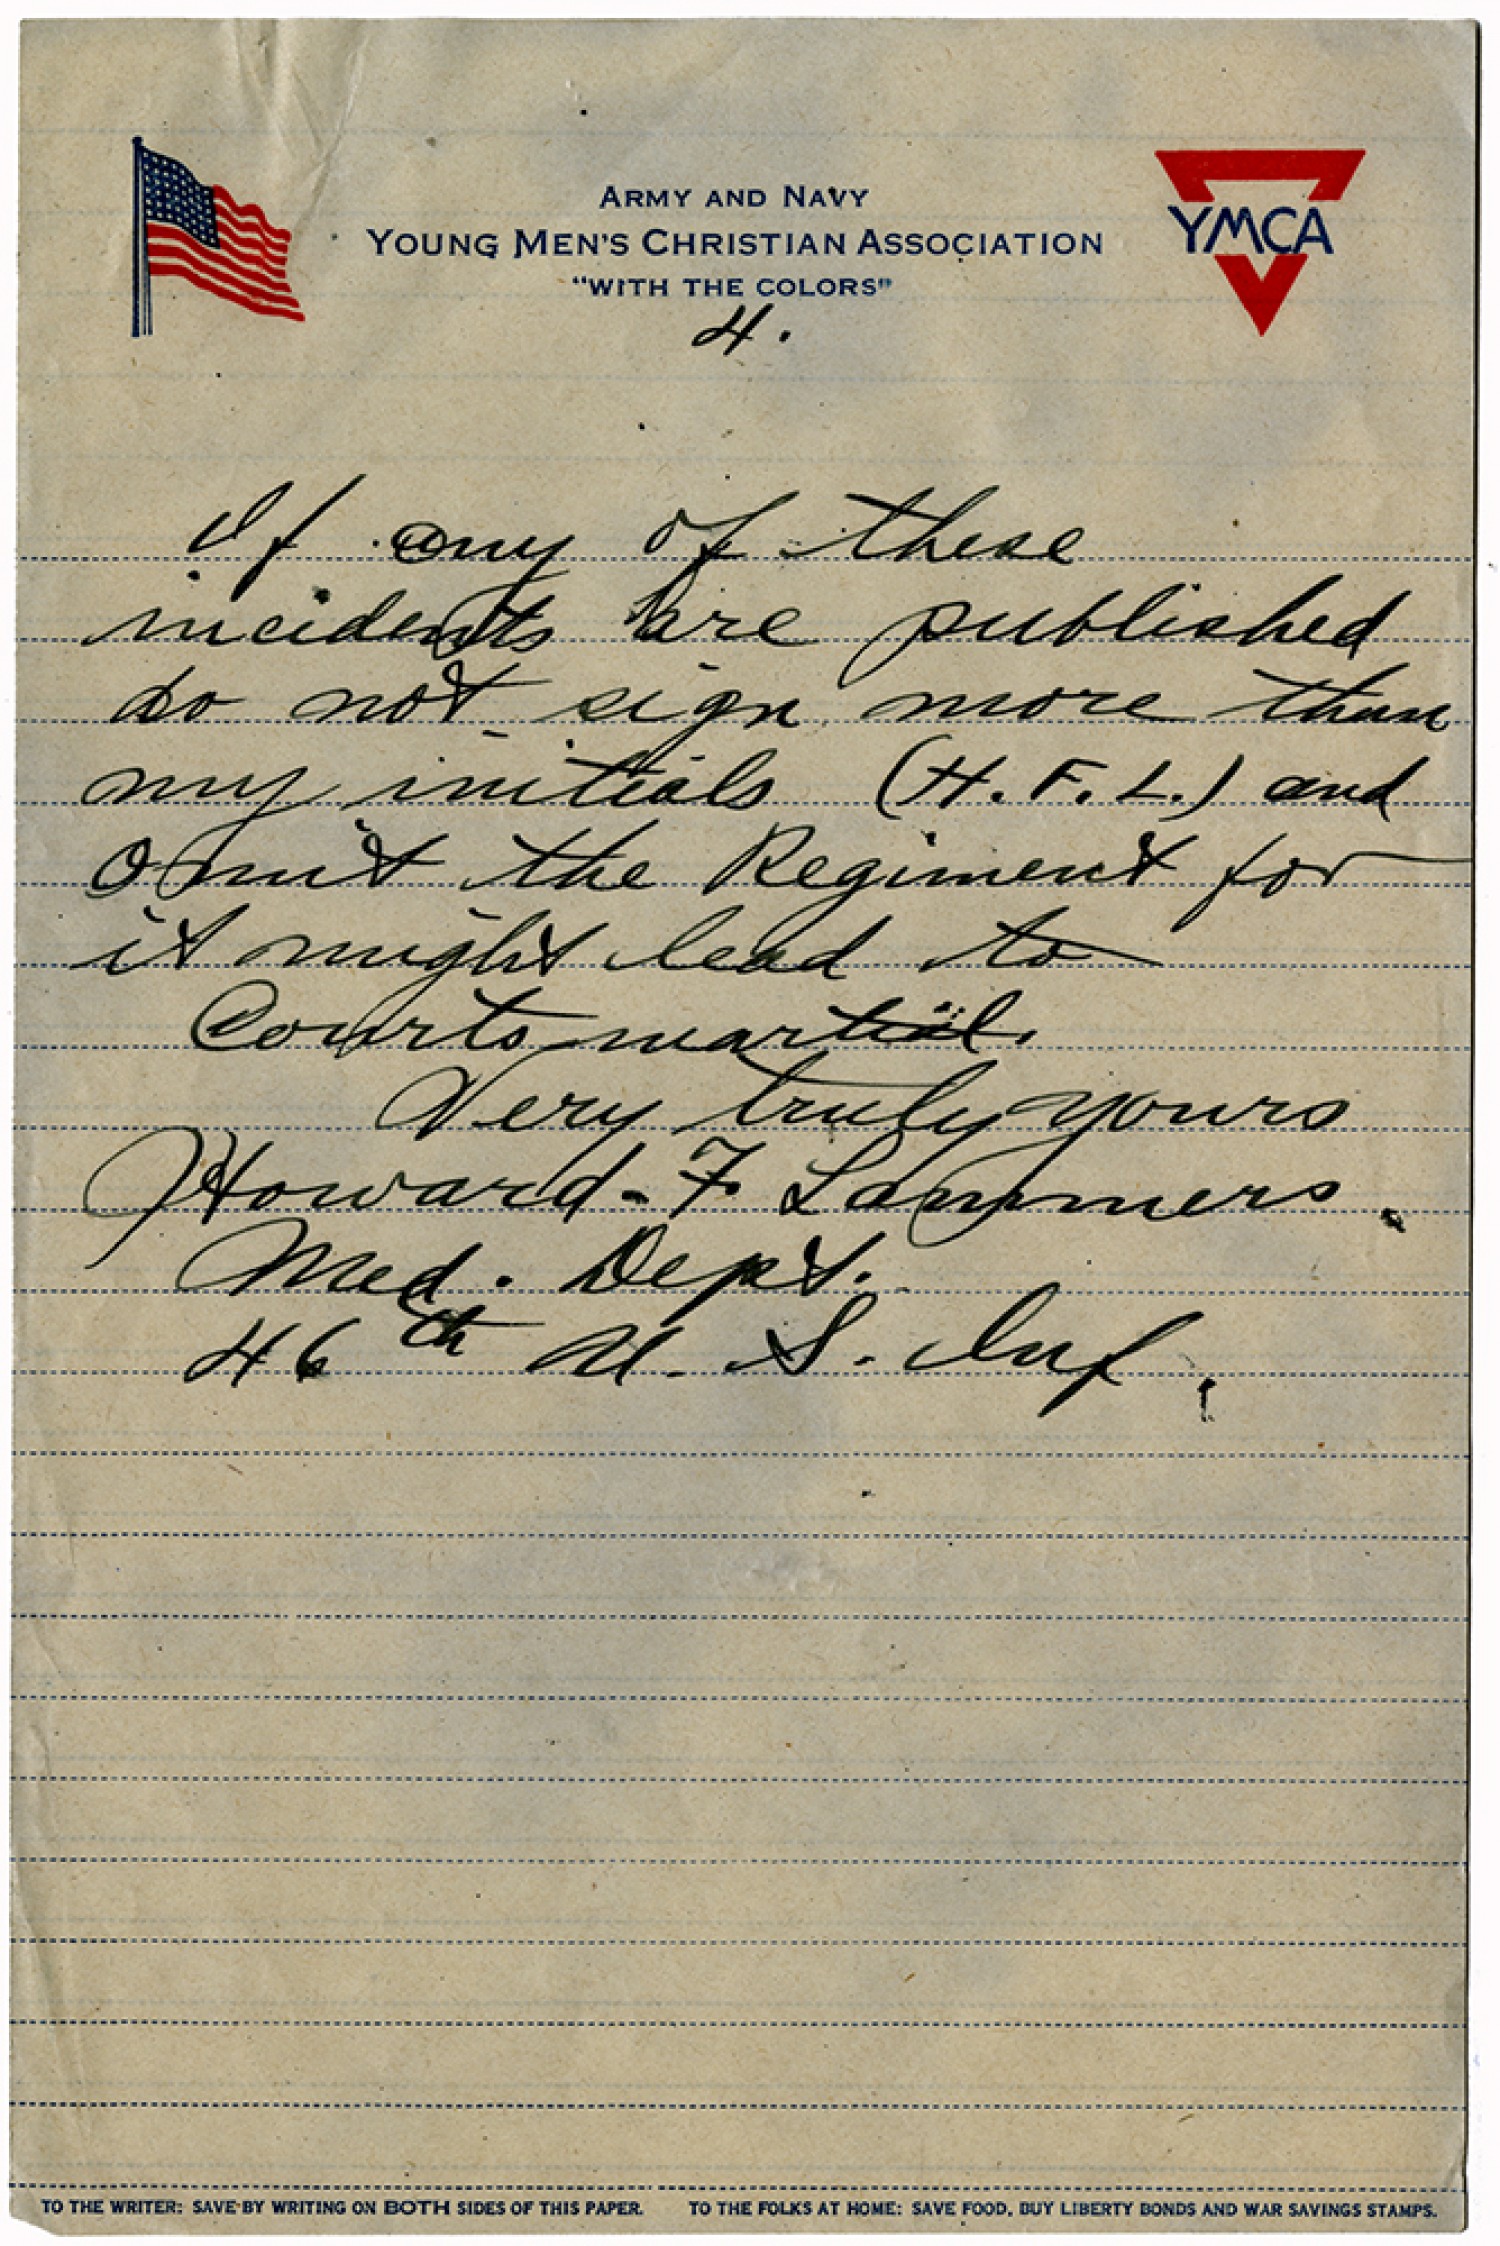 ARMY AND NAVY
YOUNG MEN'S CHRISTIAN ASSOCIATION
"WITH THE COLORS"
YMCA
4.
If any of these
incidents are published
do not sign more than
my initials (H.F.L.) and
omit the Regiment for
it might lead to
Courts martial.
Very truly yours
Howard F. Lammers.
Med. Dept.
46th U.S. Inf.
TO THE WRITER: SAVE BY WRITING ON BOTH SIDES OF THIS PAPER. TO THE FOLKS AT HOME: SAVE FOOD, BUY LIBERTY BONDS AND WAR SAVINGS STAMPS.